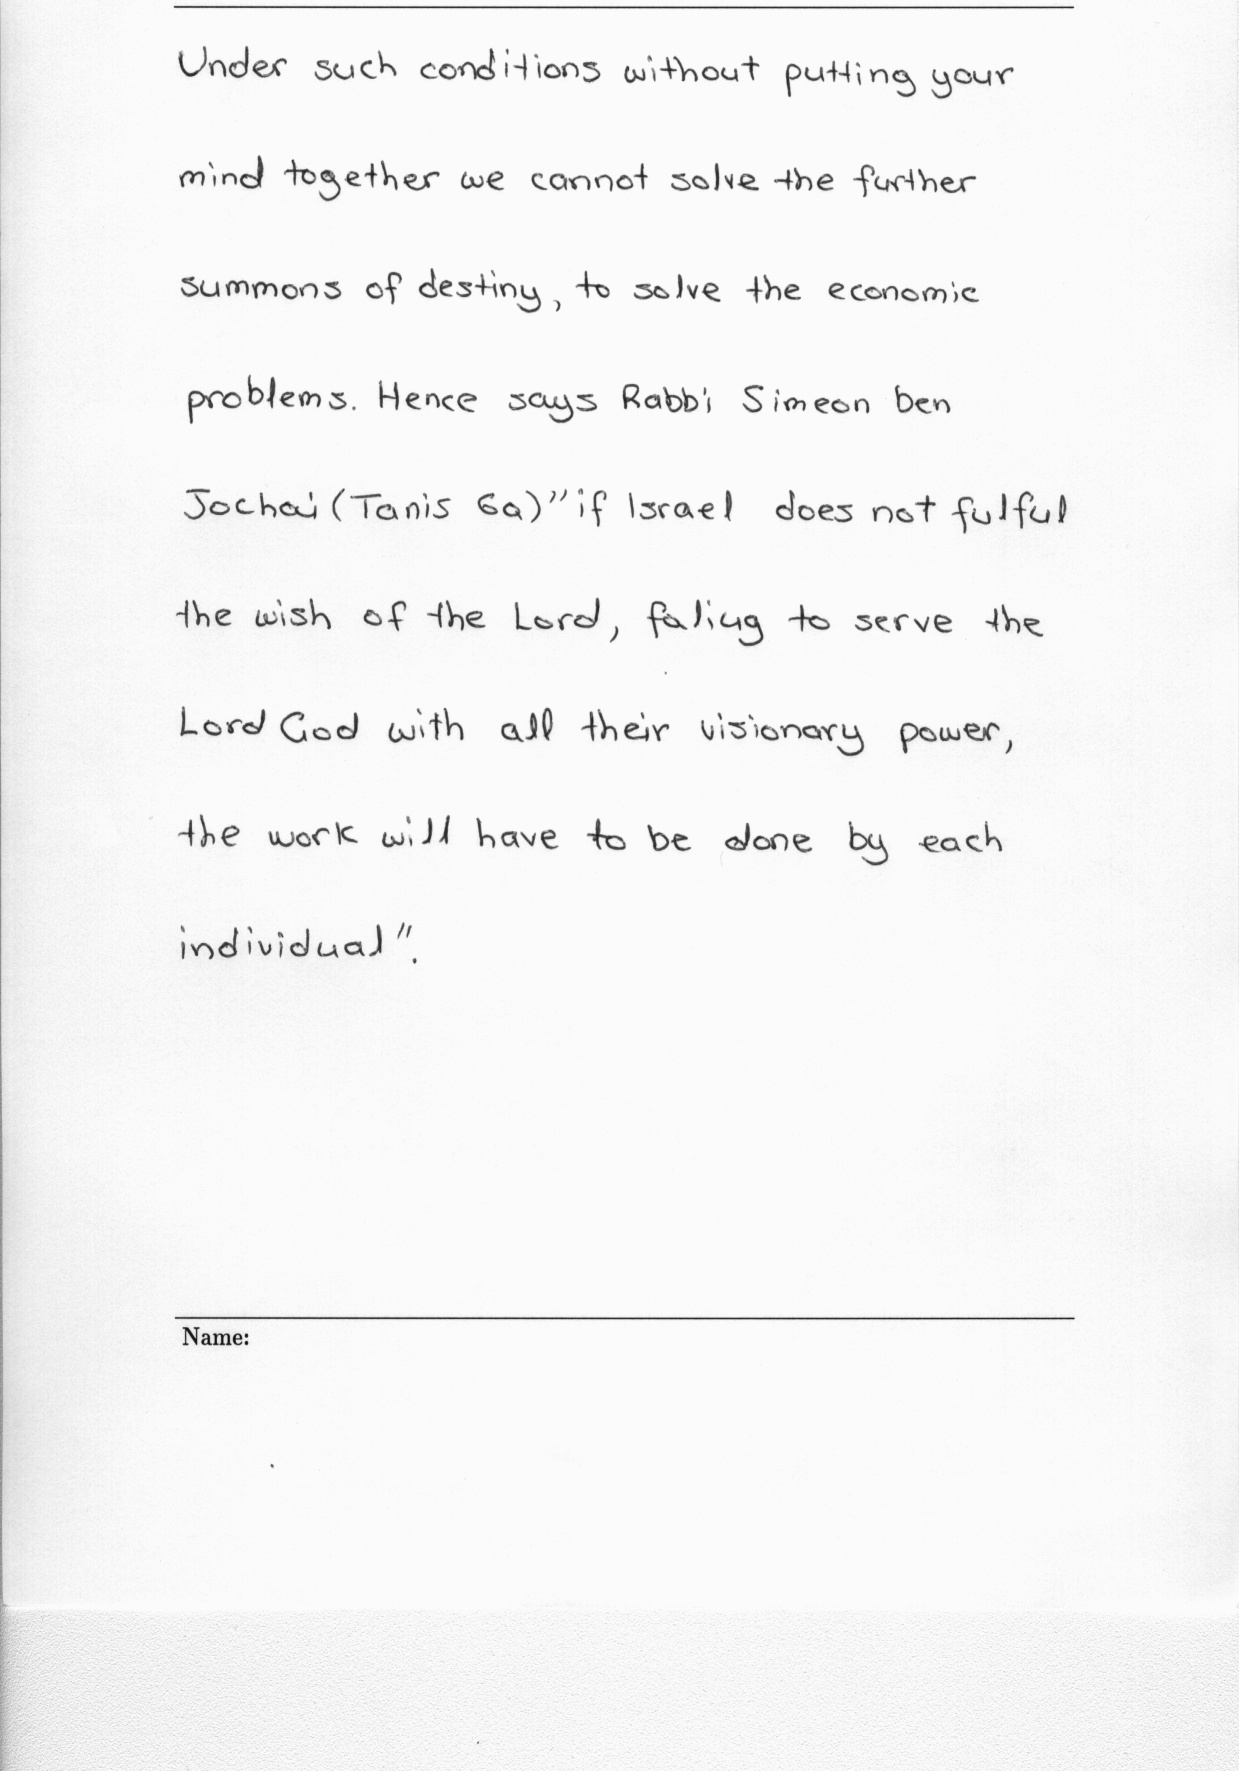 Under such conditions without putting your
mind together we cannot solve the further
summons of destiny, to solve the economic
problems. Hence says Rabbi Simeon ben
Jochai (Tanis 6a) "if Israel does not fulful
the wish of the Lord, faliug to serve the
Lord God with all their visionary power,
the work will have to be done by each
individual".
Name: